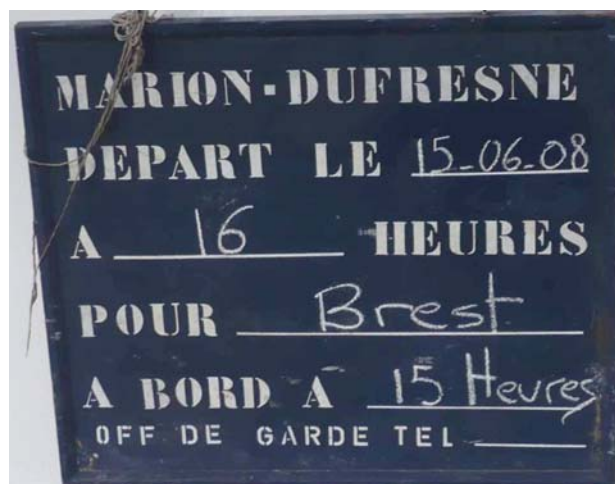 MARION-DUFRESNE
DEPART LE 15-06-08
A 16 HEURES
POUR Brest
A BORD A 15 Heures
OFF DE GARDE TEL